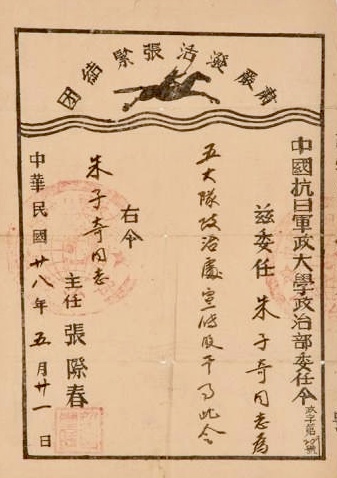 团結緊張活潑嚴肅
中國抗日軍政大學政治部委任令
政字第 號
兹委任 朱子奇同志為
五大隊政治處宣傳股干事此令
右令
朱子奇同志
主任 張際春
中華民國廿八年五月廿一日